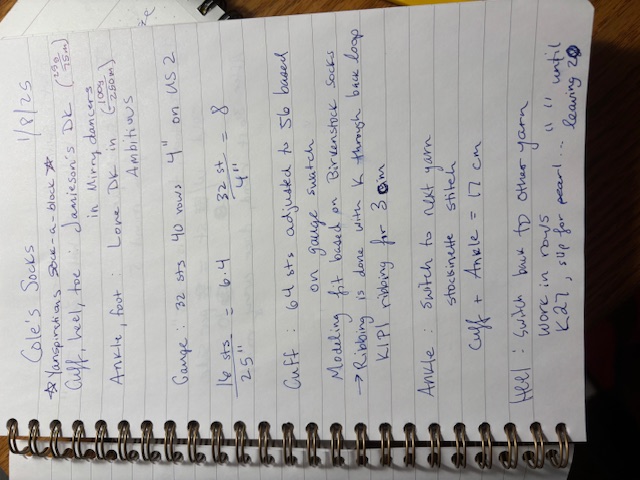 Cole's Socks 1/8/25
☆ Yarnspirations Sock-a-block ☆
Cuff, heel, toe : Jamieson's DK (25g / 75m)
in Mirry dancers
Ankle, foot : Lore DK in (100g / 250m)
Ambitious
Gauge : 32 sts 40 rows 4" on US 2
16 sts / 25" = 6.4 32 st / 4" = 8
Cuff : 64 sts adjusted to 56 based
on gauge swatch
Modeling fit based on Birkenstock Socks
→ Ribbing is done with K through back loop
K1P1 ribbing for 3 cm
Ankle : Switch to next yarn
stockinette stitch
Cuff + Ankle = 17 cm
Heel : Switch back to other yarn
work in rows
K27, slip for pearl... " " until
leaving 20